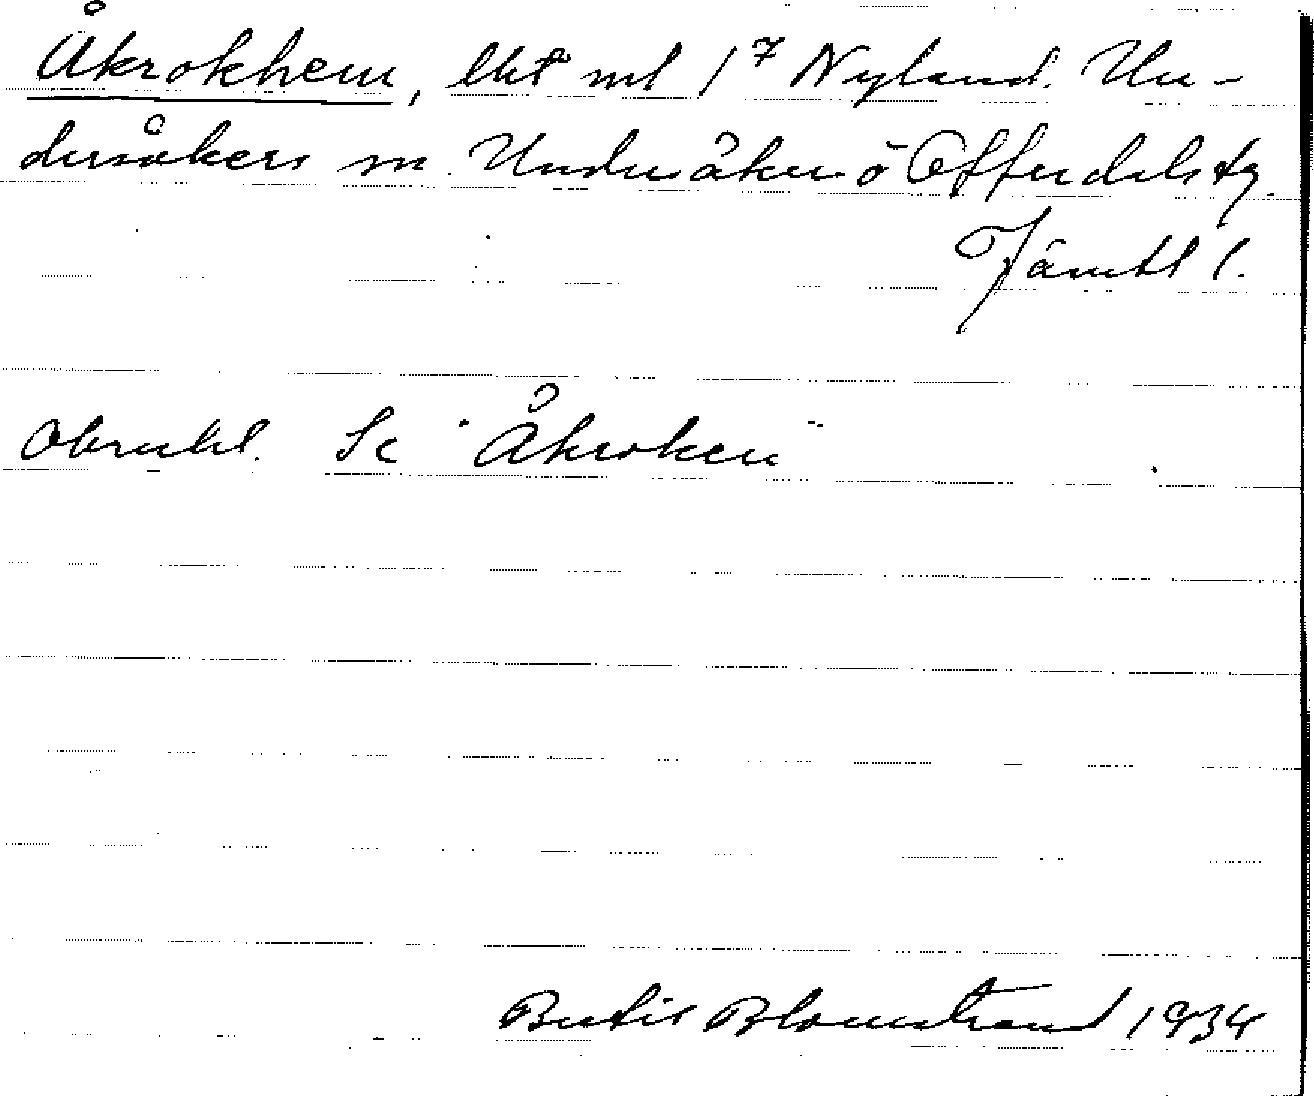 Åkrokhem, lht ml 1⁷ Nyland. Un-
dersåkers sn. Undersåkers o Offerdals tg.
Jämtl l.
Obrukl. Se "Åkroken"
Bertil Blomstrand 1934